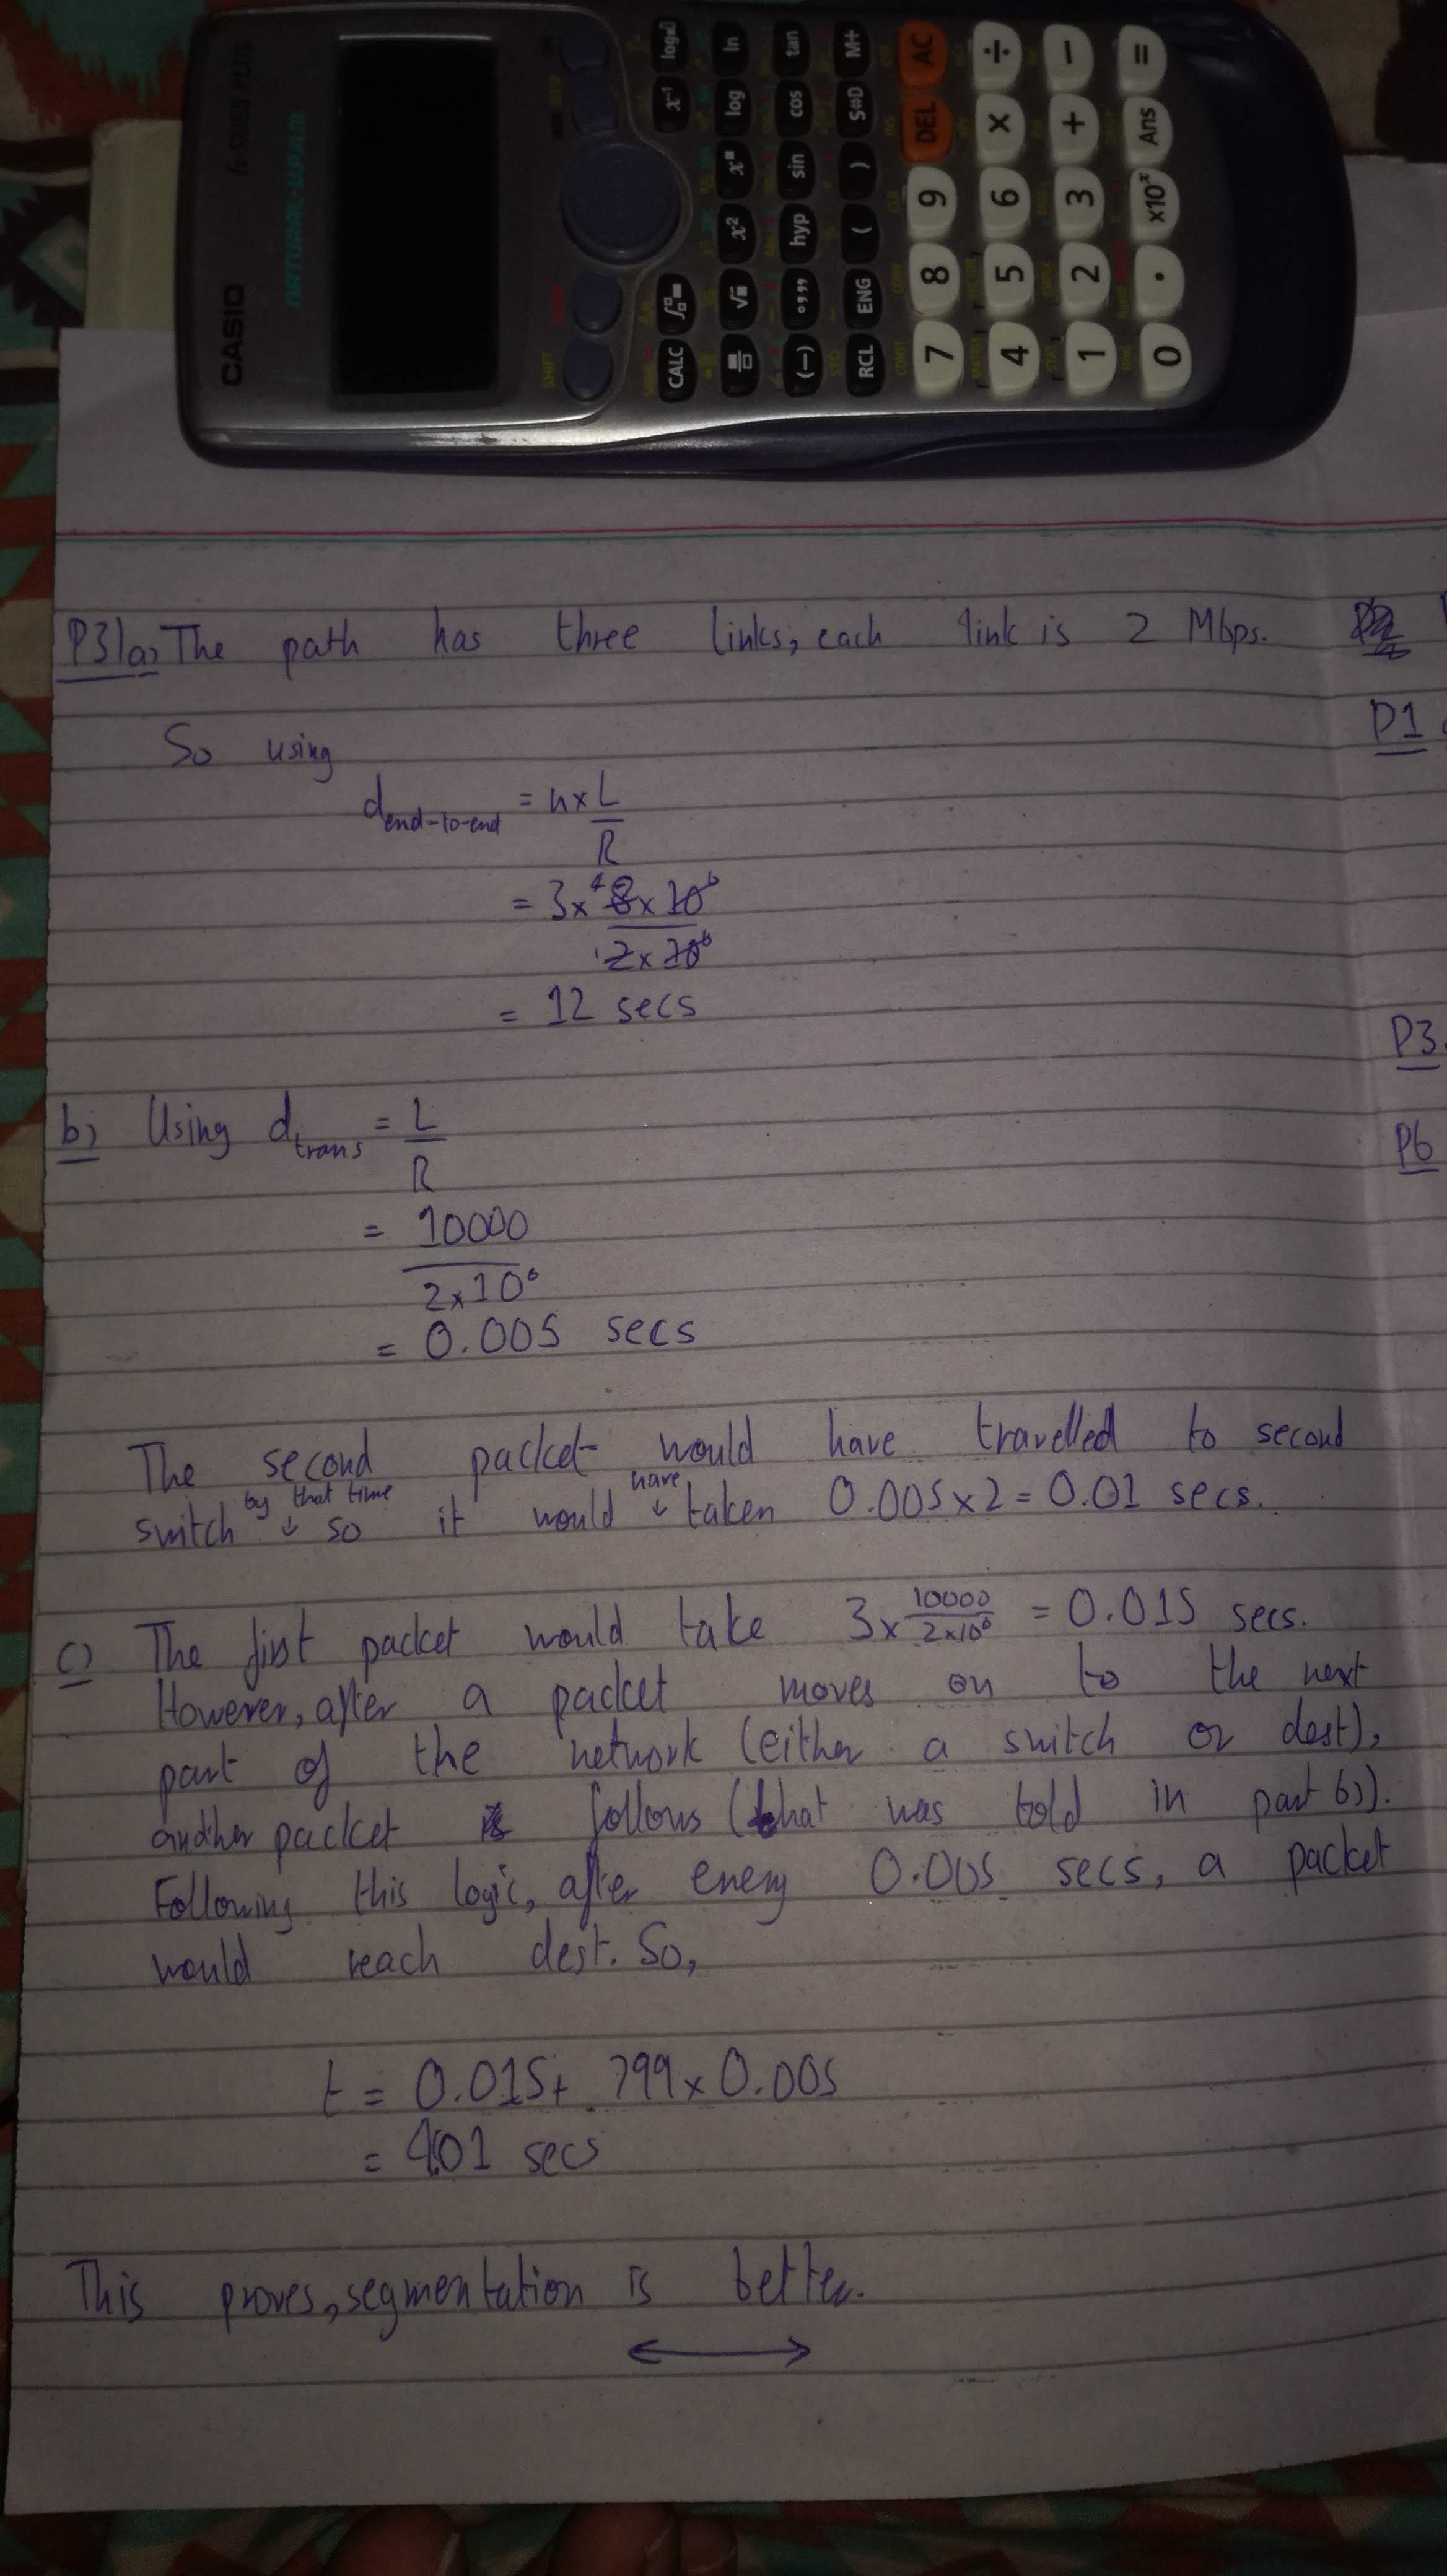 CASIO
fx-991ES PLUS
NATURAL-V.P.A.M.
SHIFT
CALC ∫ x⁻¹ log
√ x² x log ln
(−) °,,, hyp sin cos tan
RCL ENG ( ) S⇔D M+
7 8 9 DEL AC
4 5 6 × ÷
1 2 3 + −
0 . ×10ˣ Ans =
P31a) The path has three links, each link is 2 Mbps.
So using
d end-to-end = n x L/R
= 3 x 8 x 10⁶ / 2 x 10⁶
4
1
= 12 secs
b) Using d trans = L/R
= 10000 / 2 x 10⁶
= 0.005 secs
The second packet would have travelled to second
switch by that time ↓ so it would have ↓ taken 0.005 x 2 = 0.01 secs.
c) The first packet would take 3 x 10000 / 2x10⁶ = 0.015 secs.
However, after a packet moves on to the next
part of the network (either a switch or dest),
another packet follows (that was told in part b)).
Following this logic, after every 0.005 secs, a packet
would reach dest. So,
t = 0.015 + 799 x 0.005
= 4.01 secs
This proves, segmentation is better.
P1
P3.
P6